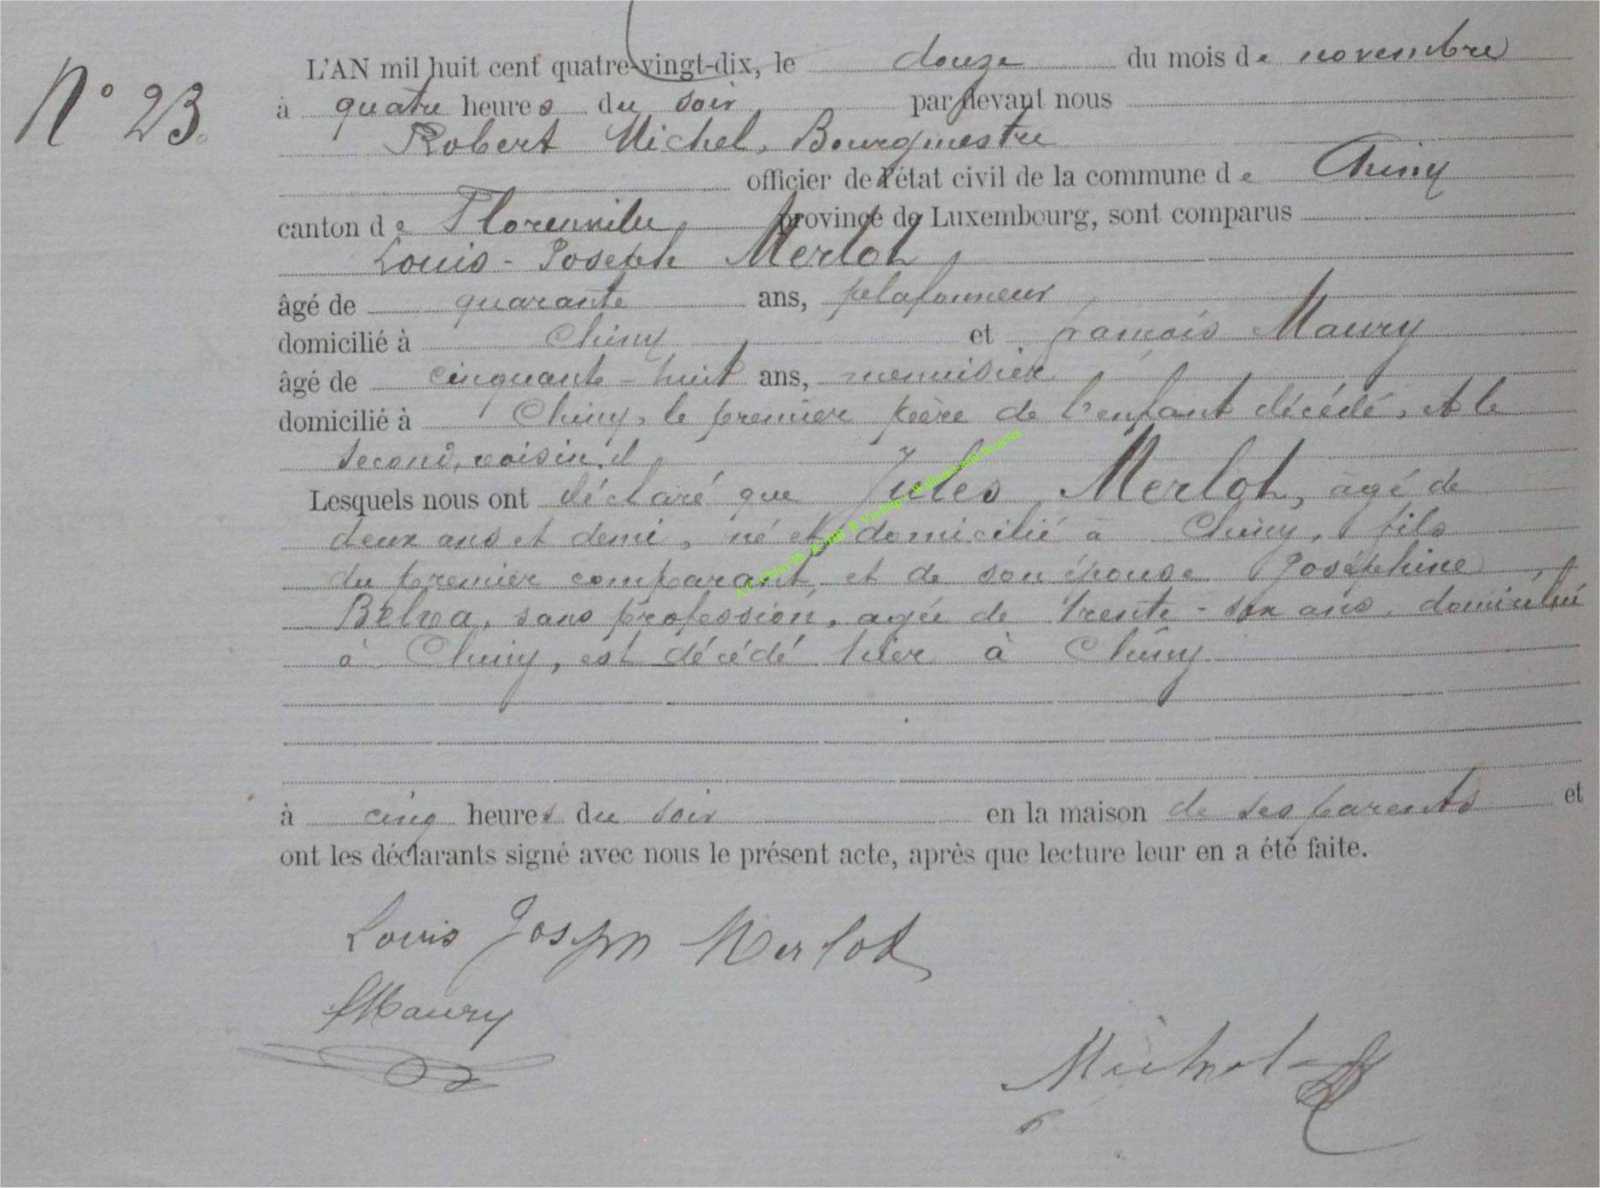 N° 23.
L'AN mil huit cent quatre-vingt-dix, le douze du mois de novembre
à quatre heures du soir par devant nous
Robert Michel, Bourgmestre
officier de l'état civil de la commune de Chiny
canton de Florenville province de Luxembourg, sont comparus
Louis-Joseph Merlot,
âgé de quarante ans, plafonneur,
domicilié à Chiny et François Maury
âgé de cinquante-huit ans, menuisier
domicilié à Chiny, le premier père de l'enfant décédé, et le
second, voisin,
Lesquels nous ont déclaré que Jules Merlot, âgé de
deux ans et demi, né et domicilié à Chiny, fils
du premier comparant et de son épouse Joséphine
Belva, sans profession, agée de trente-six ans, domiciliée
à Chiny, est décédé hier à Chiny
à cinq heures du soir en la maison de ses parents et
ont les déclarants signé avec nous le présent acte, après que lecture leur en a été faite.
Louis Joseph Merlot
Maury
Michel